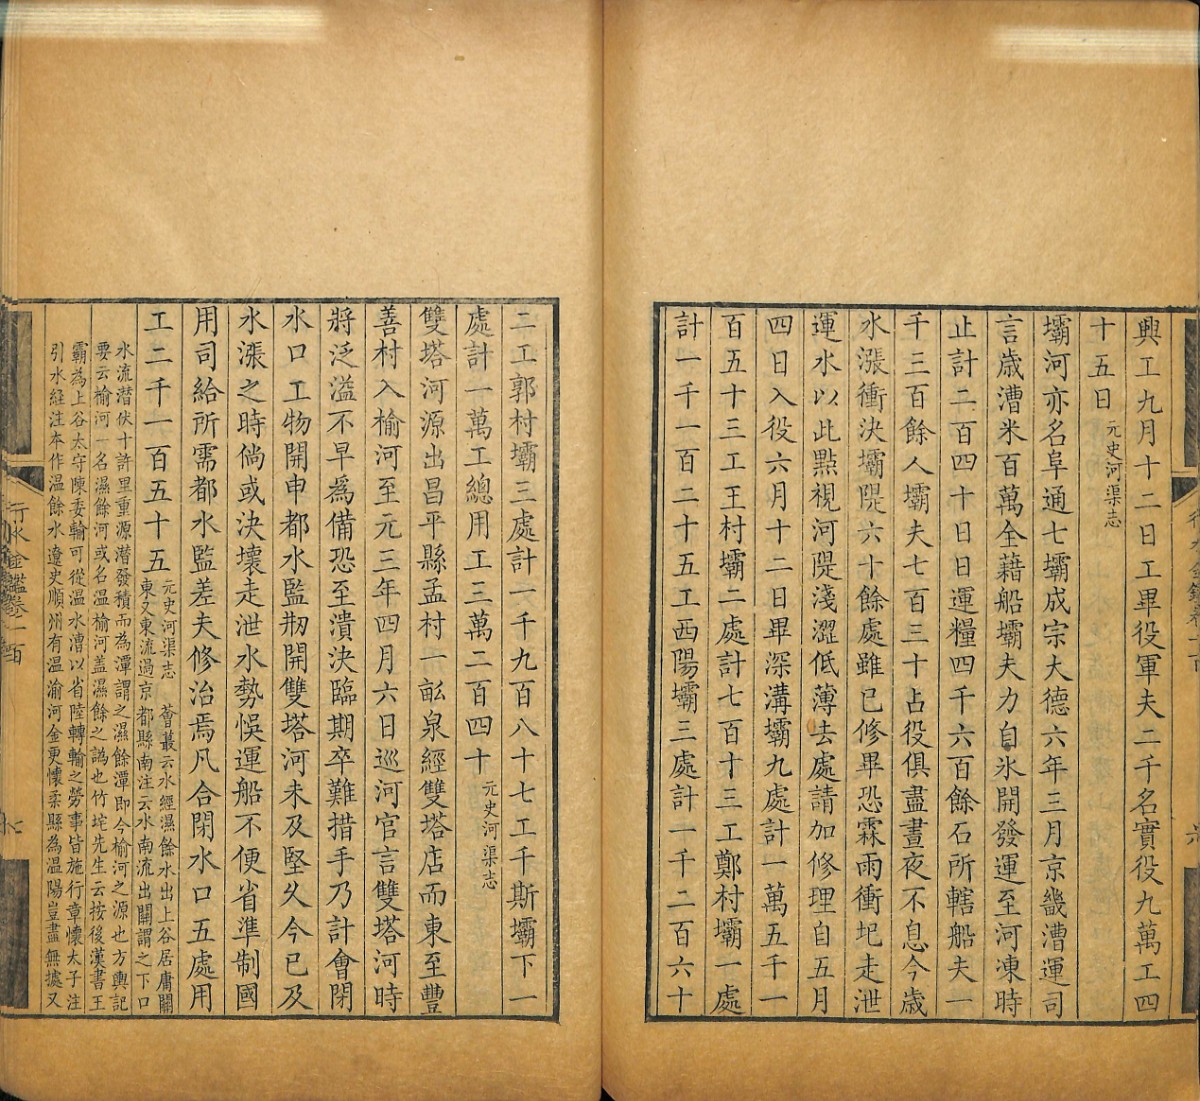 興工九月十二日工畢役軍夫二千名實役九萬工四
十五日元史河渠志
壩河亦名阜通七壩成宗大德六年三月京畿漕運司
言歲漕米百萬全藉船壩夫力自氷開發運至河凍時
止計二百四十日日運糧四千六百餘石所轄船夫一
千三百餘人壩夫七百三十占役俱盡晝夜不息今歲
水漲衝決壩隄六十餘處雖已修畢恐霖雨衝圮走泄
運水以此點視河隄淺澀低薄去處請加修理自五月
四日入役六月十二日畢深溝壩九處計一萬五千一
百五十三工王村壩二處計七百十三工鄭村壩一處
計一千一百二十五工西陽壩三處計一千二百六十
二工郭村壩三處計一千九百八十七工千斯壩下一
處計一萬工總用工三萬二百四十元史河渠志
雙塔河源出昌平縣孟村一畝泉經雙塔店而東至豐
善村入榆河至元三年四月六日巡河官言雙塔河時
將泛溢不早爲備恐至潰決臨期卒難措手乃計會閉
水口工物開申都水監刱開雙塔河未及堅久今已及
水漲之時倘或決壞走泄水勢悞運船不便省準制國
用司給所需都水監差夫修治焉凡合閉水口五處用
工二千一百五十五元史河渠志 薈蕞云水經濕餘水出上谷居庸關
東又東流過京都縣南注云水南流出關謂之下口
水流潛伏十許里重源潛發積而為潭謂之濕餘潭即今榆河之源也方輿記
要云榆河一名濕餘河或名温榆河盖濕餘之譌也竹垞先生云按後漢書王
霸為上谷太守陳委輸可從温水漕以省陸轉輸之勞事皆施行章懷太子注
引水經注本作温餘水遼史順州有温渝河金更懷柔縣為温陽豈盡無據又
行水金鑑卷一百